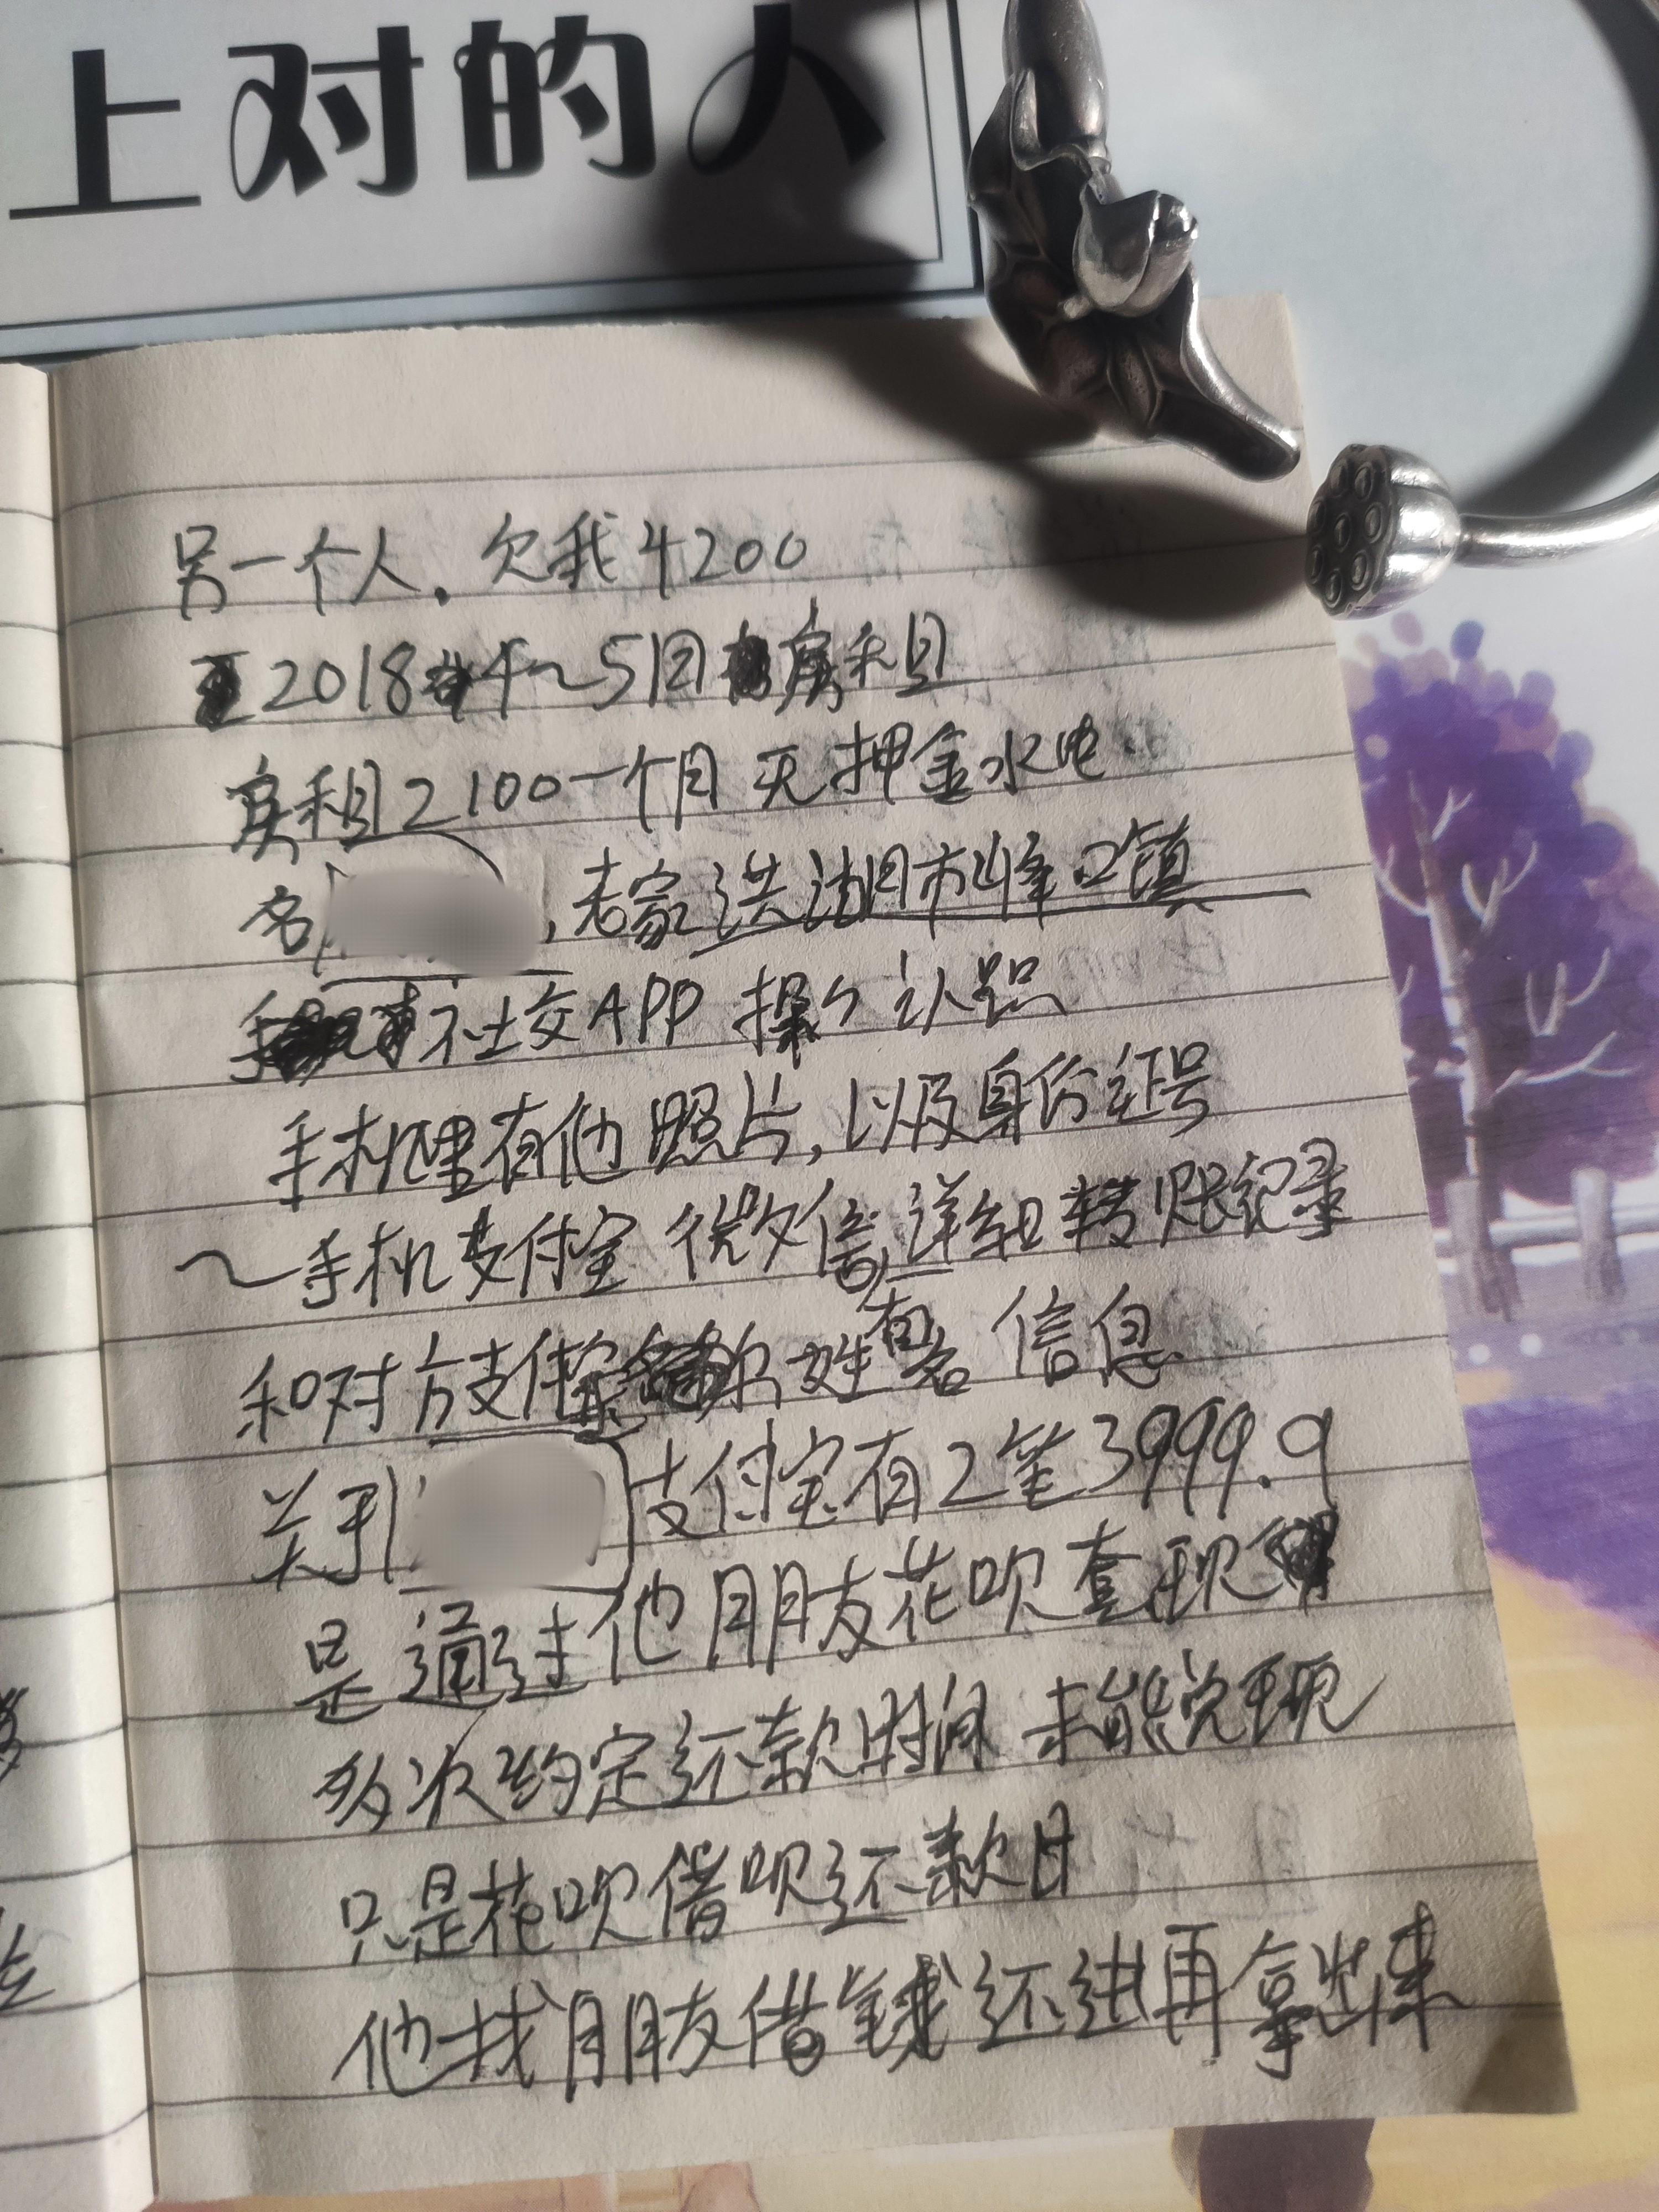 上对的人
另一个人.欠我4200
2018年4~5月房租
房租2100一个月 无押金水电
名 ,老家洪湖市峰口镇
社交APP 探个认识
手机里有他照片,以及身份证号
~手机支付宝 微信详细转账记录
有
和对方支付宝 姓名 信息
关于 支付宝有2笔3999.9
是通过他朋友花呗套现
多次约定还款时间 未能兑现
只是花呗借呗还款日
他找朋友借钱还进再拿出来